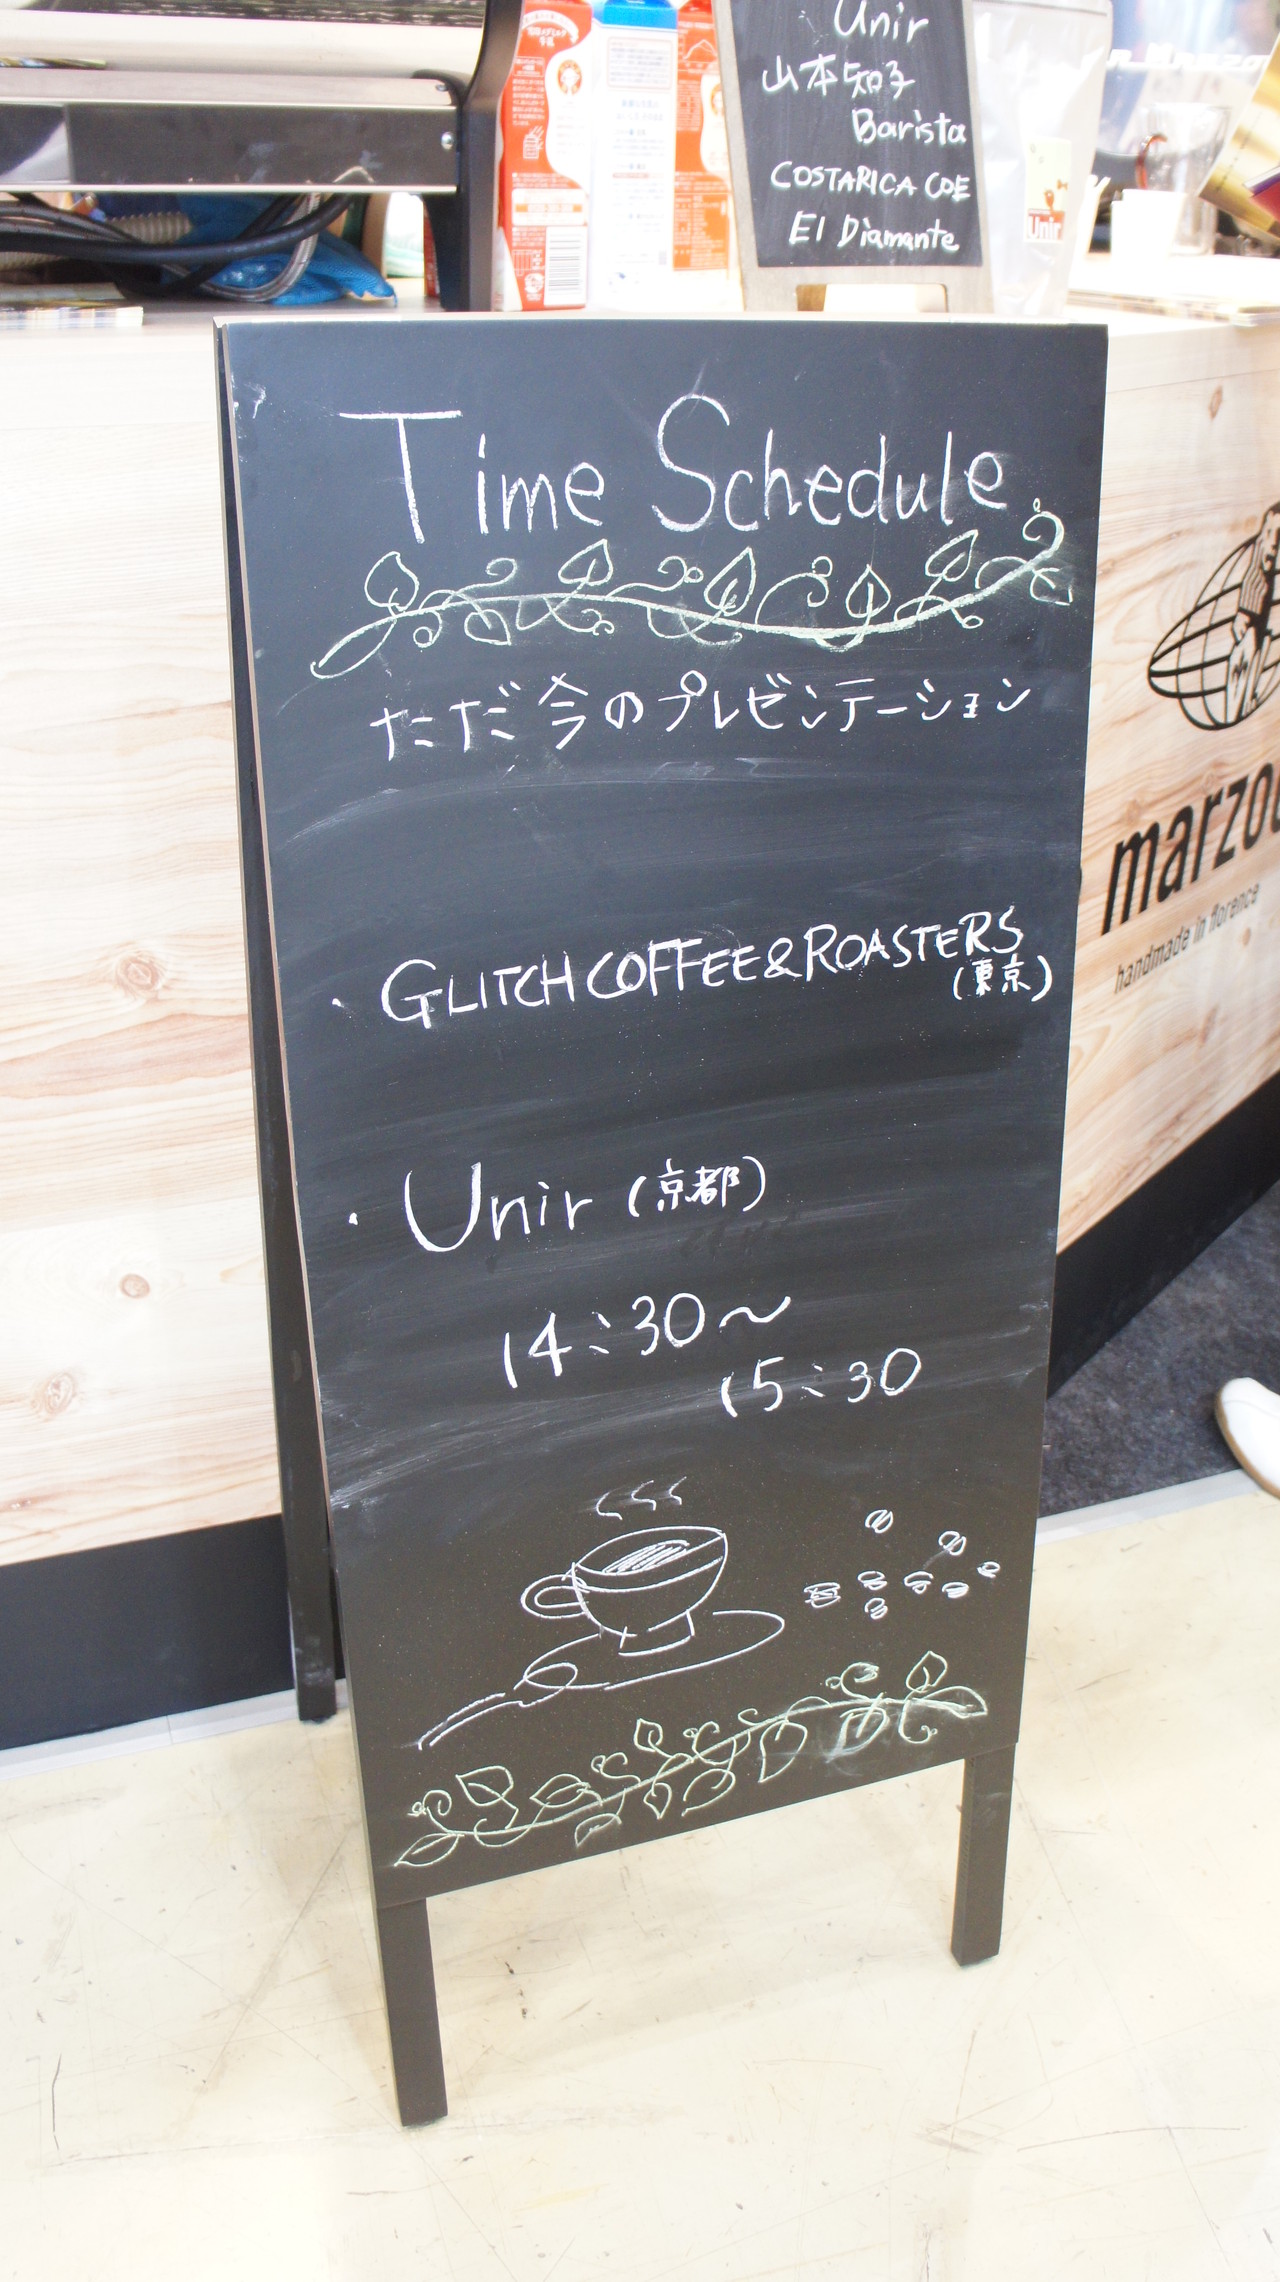 Unir
山本知子
Barista
COSTARICA COE
El Diamante
Unir
Time Schedule
ただ今のプレゼンテーション
・GLITCH COFFEE&ROASTERS
(東京)
・Unir (京都)
14:30～
15:30
marzoc
handmade in florence